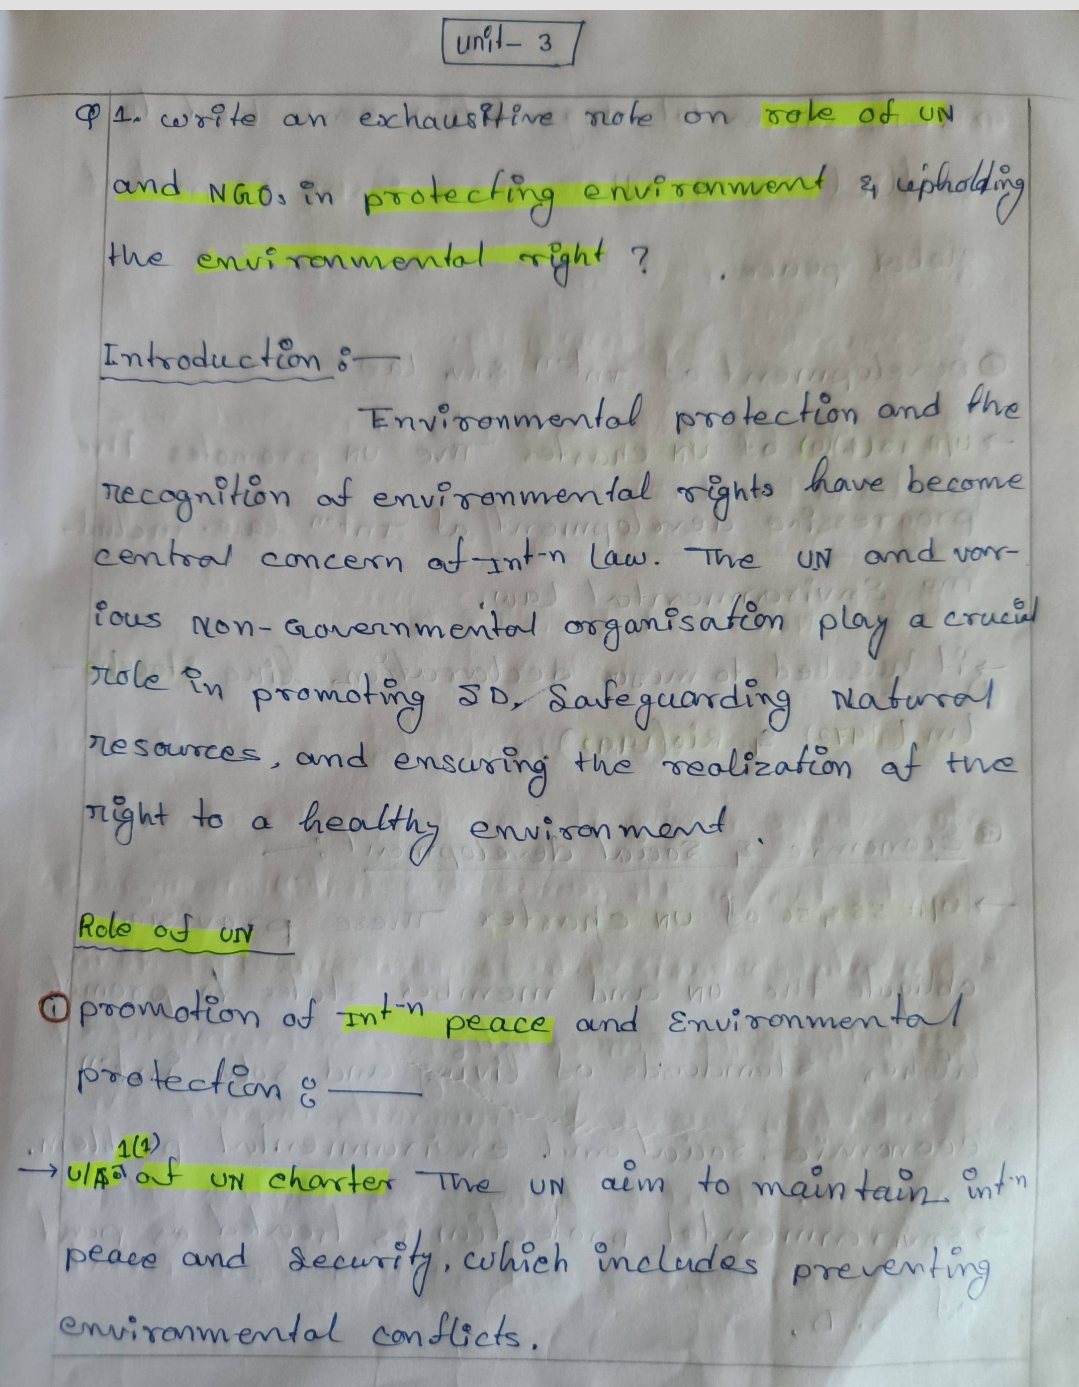 Unit- 3
Q 1. write an exhaustive note on role of UN
and NGOs in protecting environment & upholding
the environmental right ?
Introduction :—
Environmental protection and the
recognition of environmental rights have become
central concern of Int-n law. The UN and var-
ious Non-Governmental organisation play a crucial
role in promoting SD, Safeguarding Natural
resources, and ensuring the realization of the
right to a healthy environment.
Role of UN
① promotion of Int-n peace and Environmental
protection :—
1(1)
→ U/A of UN charter The UN aim to maintain int-n
peace and security, which includes preventing
environmental conflicts.